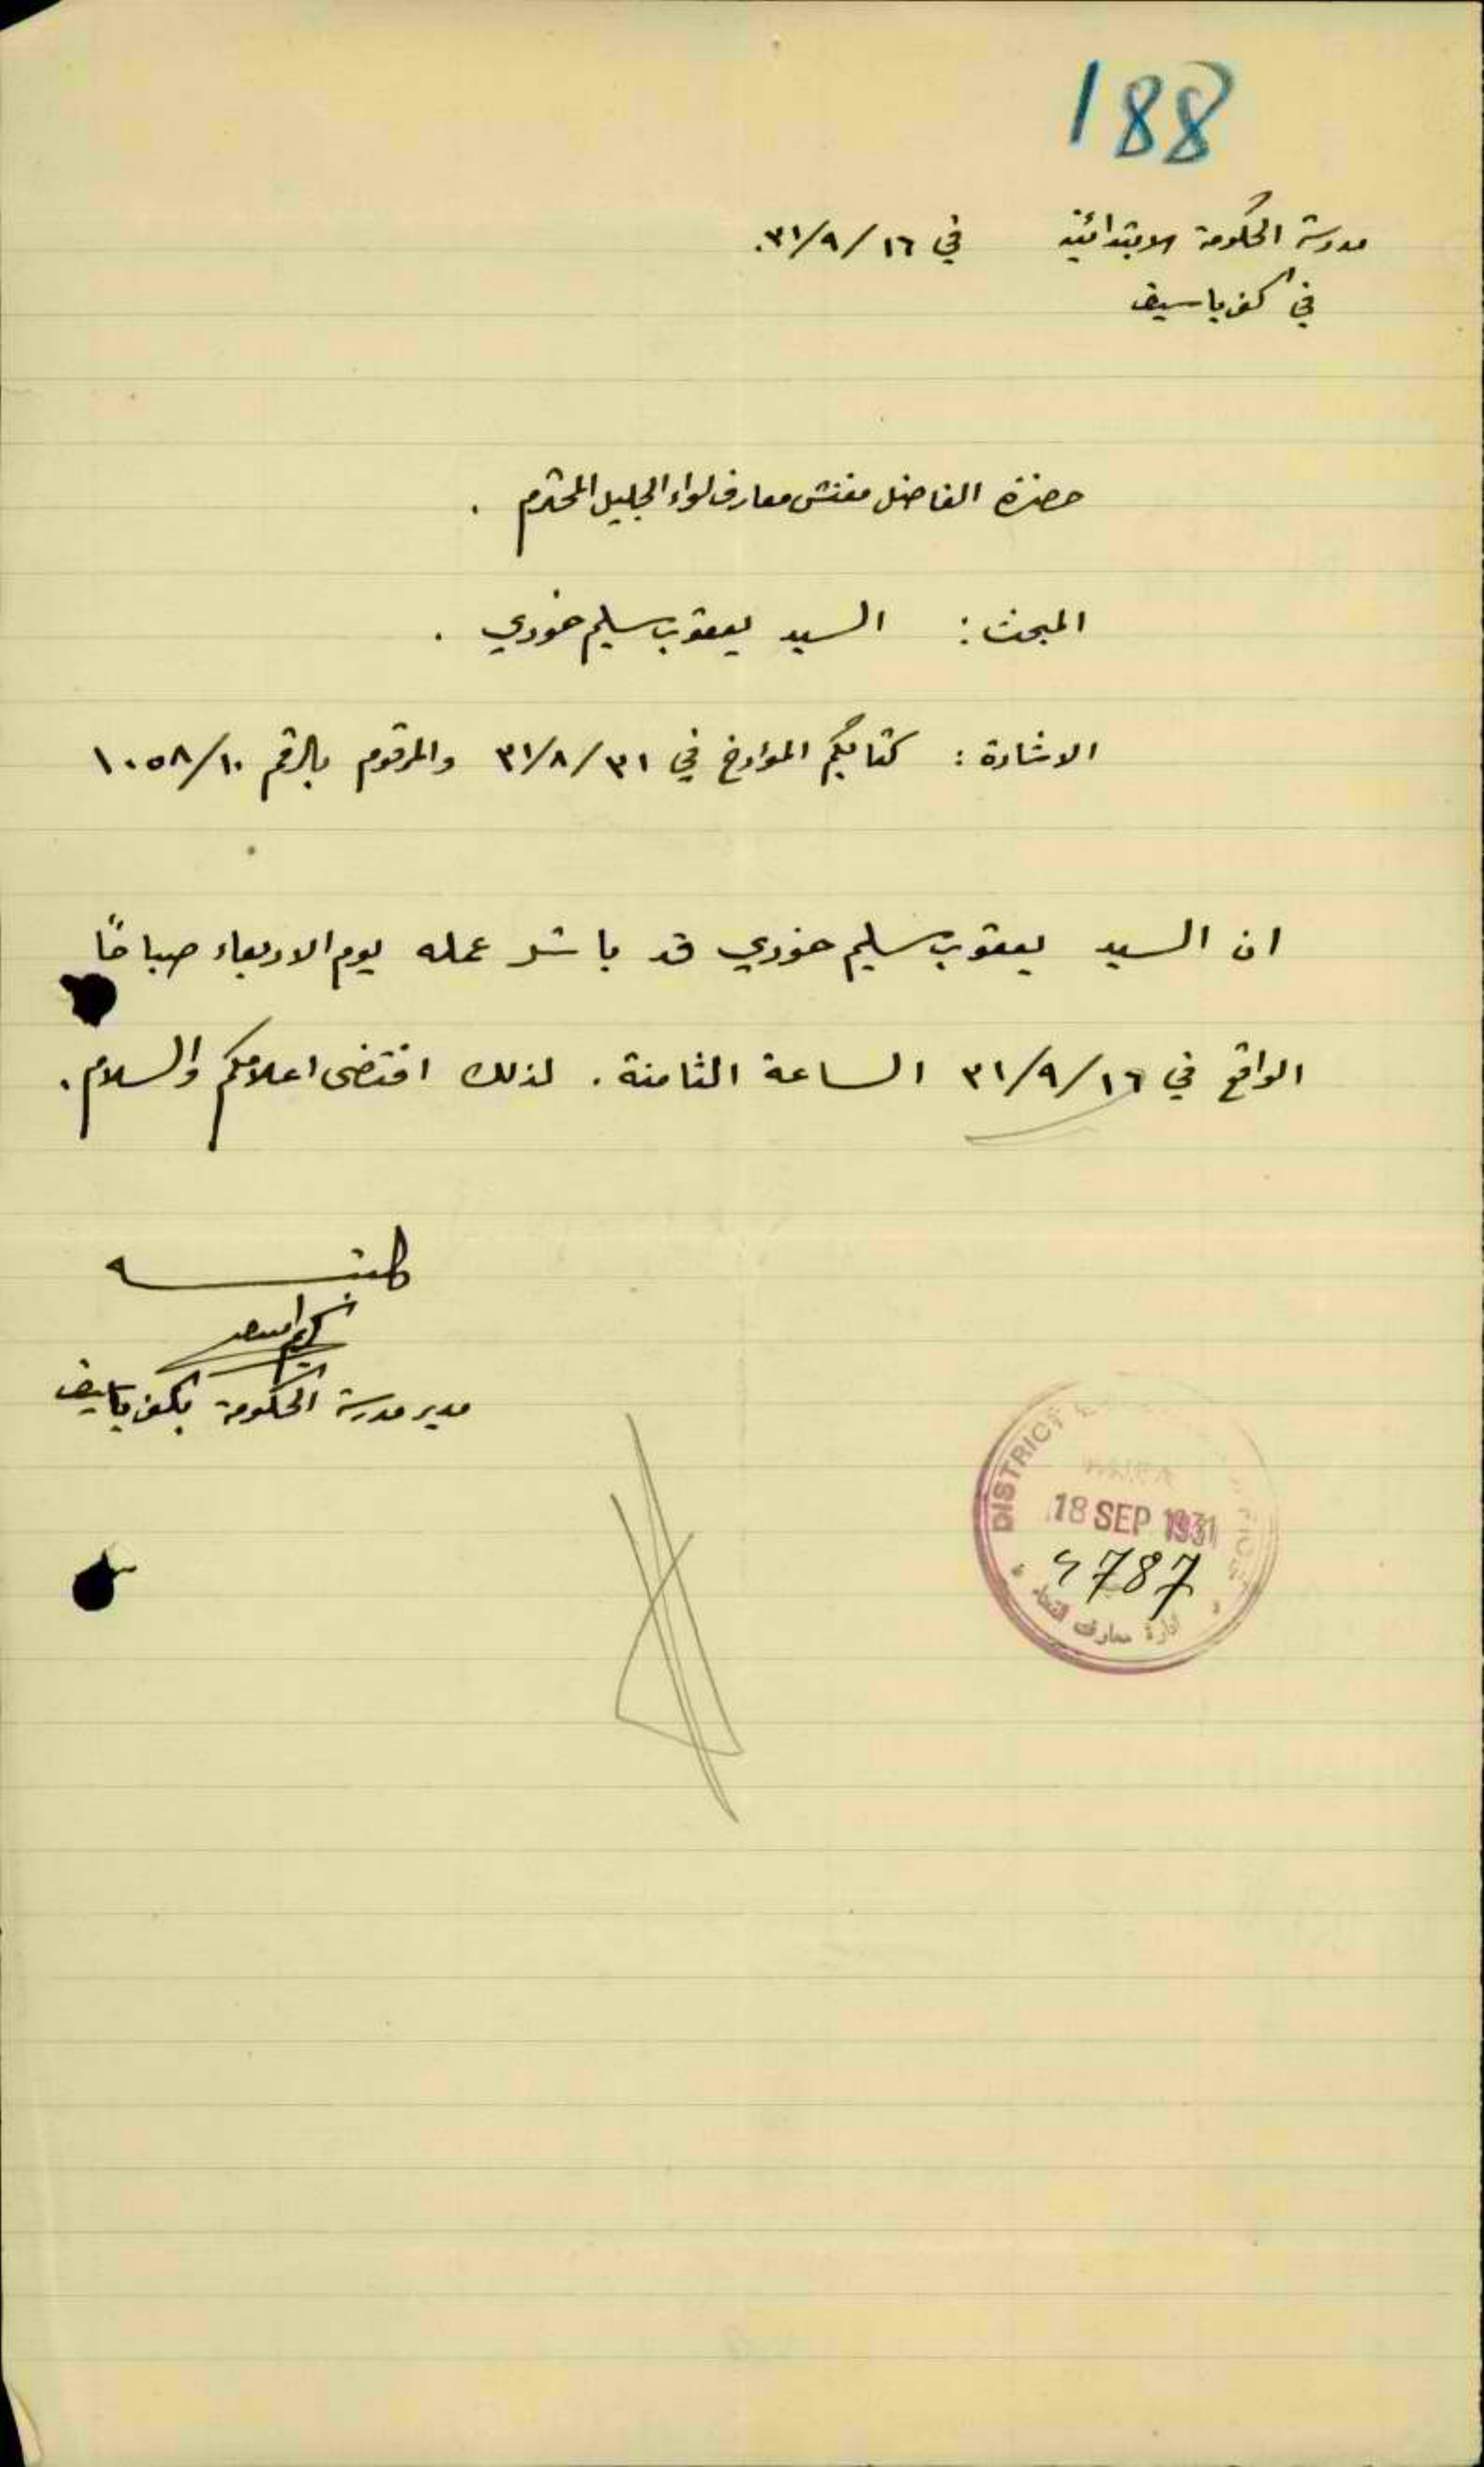 188
مدرسة الحكومة الابتدائية في ١٦/٩/٣١.
في كفرياسيف
حضرة الفاضل مفتش معارف لواء الجليل المحترم .
المبحث : السيد يعقوب سليم خوري .
الاشارة : كتابكم المؤرخ في ٣١/٨/٣١ والمرقوم بالرقم ١٠٥٨/١٠
ان السيد يعقوب سليم خوري قد باشر عمله يوم الاربعاء صباحًا
الواقع في ١٦/٩/٣١ الساعة الثامنة . لذلك اقتضى اعلامكم والسلام .
كتبه
مدير مدرسة الحكومة بكفرياسيف
DISTRICT
18 SEP 1931
4787
ادارة معارف القضاء